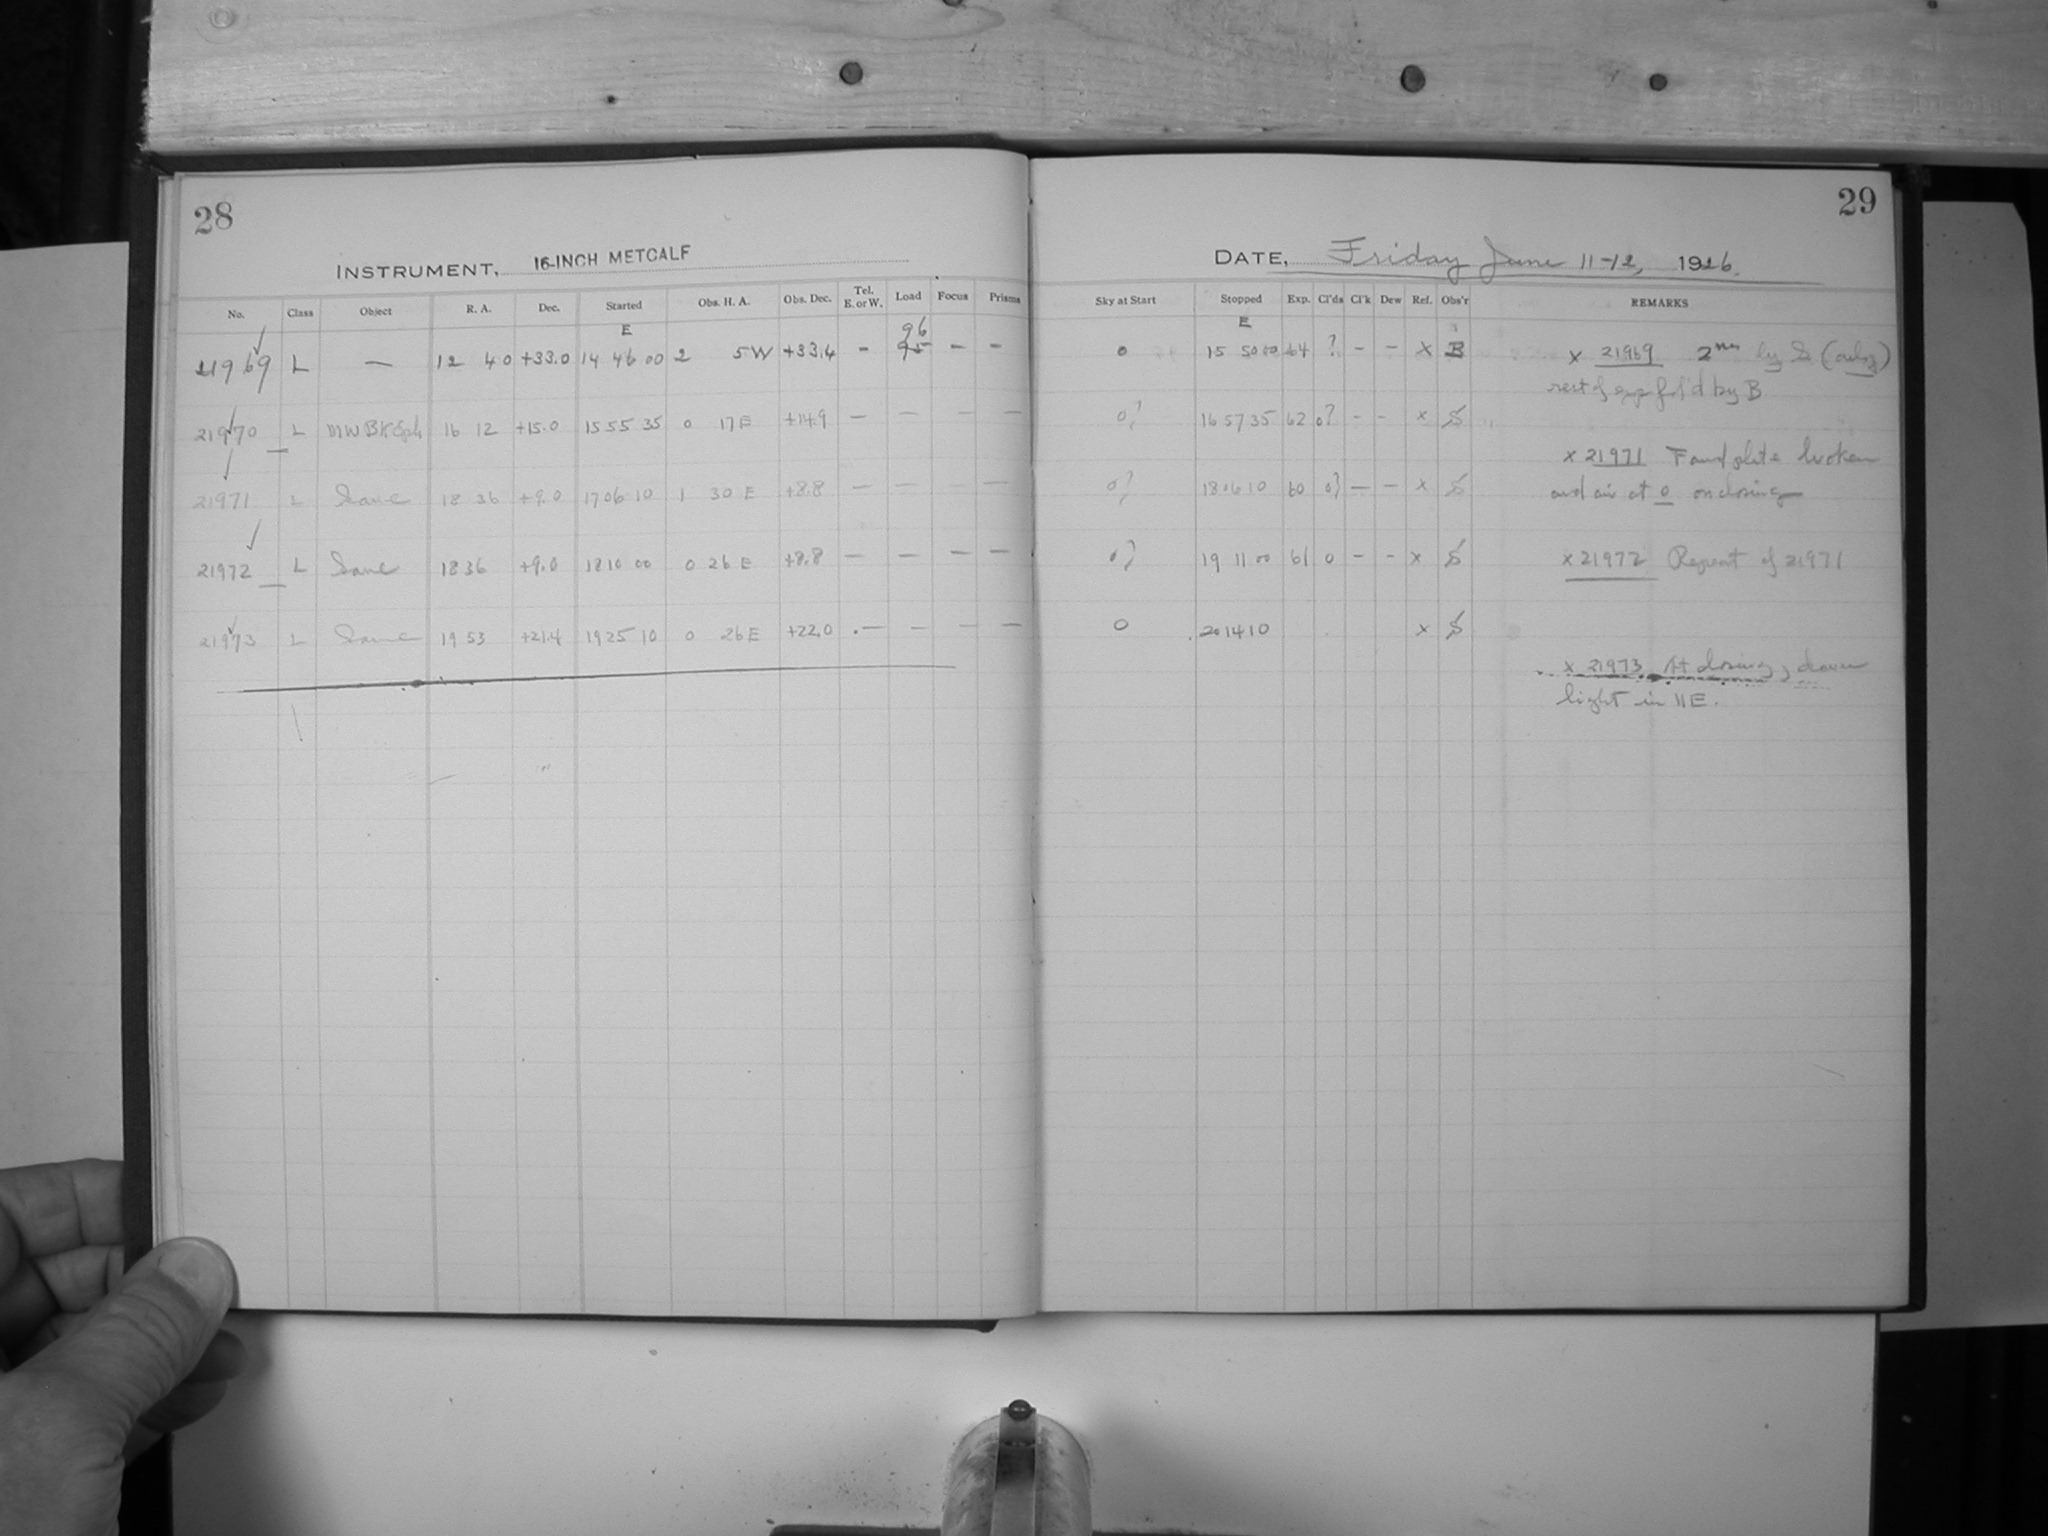 28
INSTRUMENT, 16-INCH METCALF
No. Class Object R. A. Dec. Started Obs. H. A. Obs. Dec. Tel. E. or W. Load Focus Prisms
E 96
21969 L — 12 40 +33.0 14 46 00 2 5 W +33.4 - 95 - -
21970 L MWBKEph 16 12 +15.0 15 55 35 0 17 E +14.9 — — — —
21971 L Same 18 36 +9.0 17 06 10 1 30 E +8.8 — — — —
21972 L Same 18 36 +9.0 18 10 00 0 26 E +8.8 — — — —
21973 L Same 19 53 +21.4 19 25 10 0 26 E +22.0 — — — —
29
DATE, Friday June 11-12, 1926.
Sky at Start Stopped Exp. Cl'ds Cl'k Dew Ref. Obs'r REMARKS
E
0 15 50 00 64 ? - - X B x 21969 2 by S
rest of exp by B
0? 16 57 35 62 0? - - x S
x 21971 F and plate broken
0? 18 06 10 60 0? — - x S and air at 0 on closing
0? 19 11 00 61 0 - - x S x 21972 Repeat of 21971
0 20 14 10 x S
x 21973 At closing, dawn
light in NE.